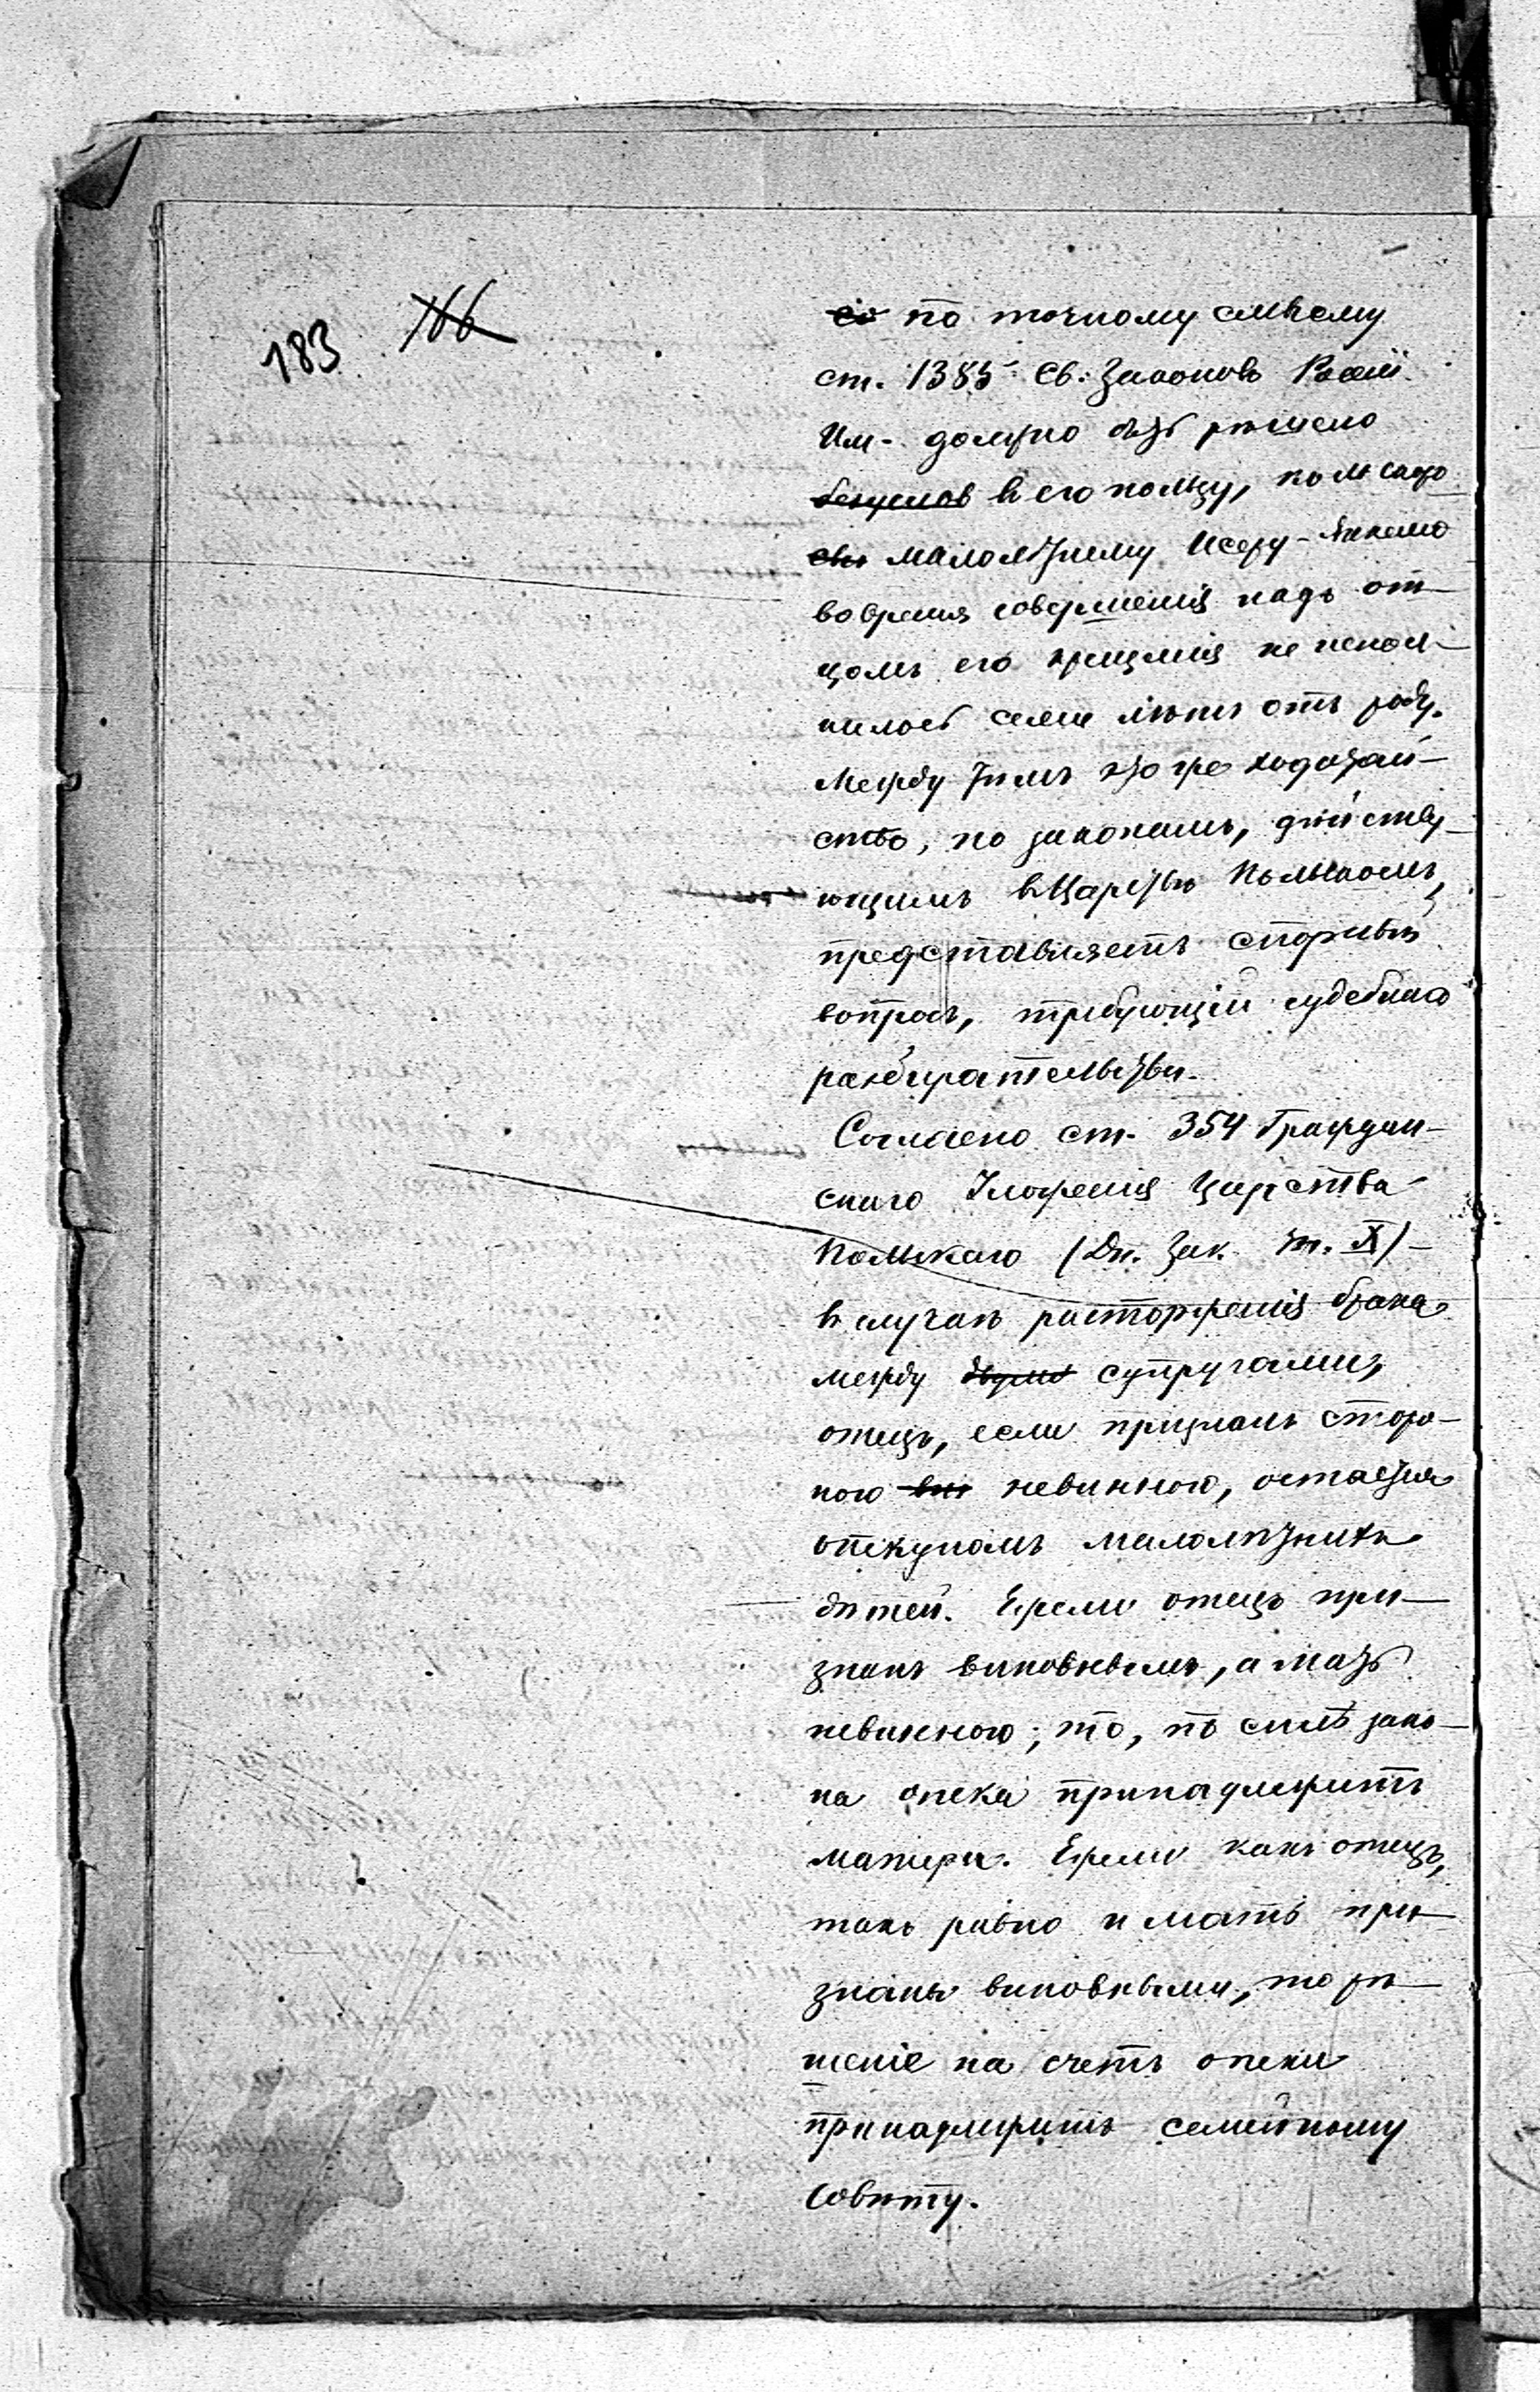 183 166
по точному смыслу
ст. 1385 Св. Законовъ Россій.
Им. должно быть рѣшено
въ его пользу,
малолѣтнему
во время совершенія надъ от-
цомъ его крещенія не испол-
нилось семи лѣтъ отъ роду.
Между тѣмъ это же ходатай-
ство, по законамъ, дѣйству-
ющимъ въ Царствѣ Польскомъ,
представляетъ спорный
вопросъ, требующій судебнаго
разбирательства.
Согласно ст. 354 Граждан-
скаго Уложенія Царства
Польскаго (Дн. Зак. т. X)
въ случаѣ расторженія брака
между двумя супругами,
отецъ, если признанъ сторо-
ною невинною, остается
опекуномъ малолѣтнихъ
дѣтей. Ежели отецъ при-
знанъ виновнымъ, а мать
невинною; то, по силѣ зако-
на опека принадлежитъ
матери. Ежели какъ отецъ,
такъ равно и мать при-
знаны виновными, то рѣ-
шеніе на счетъ опеки
принадлежитъ семейному
совѣту.